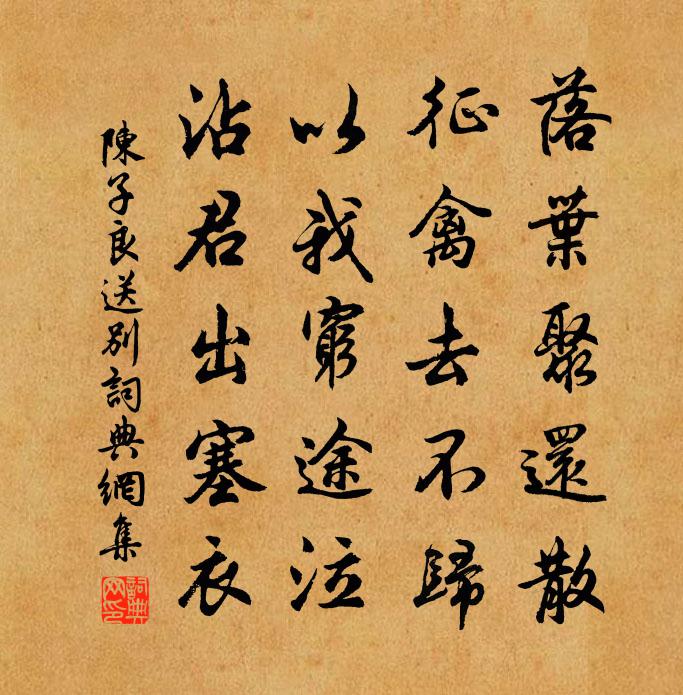 落葉聚還散
征禽去不歸
以我窮途泣
沾君出塞衣
陳子良送別詞典網集
詞典網印